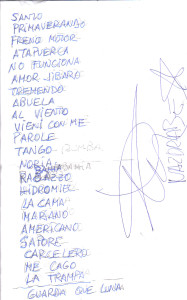 SANTO
PRIMAVERANDO
FRENO MOTOR
ATAPUERCA
NO FUNCIONA
AMOR SIBARO
TREMENDO
ABUELA
AL VIENTO
VIENI CON ME
PAROLE
TANGO
NORIA
RAGAZZO
HIDROMIEL
LA CAMA
MARIANO
AMERICANO
SAPORE
CARCELERO
ME CAGO
LA TRAMPA
GUARDA QUE LUNA